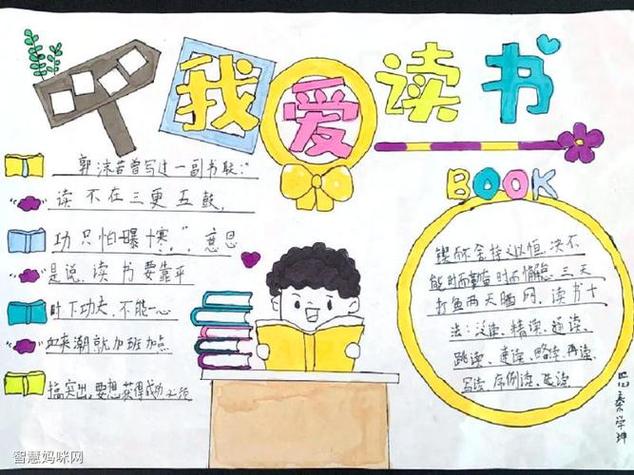 我爱读书
BOOK
郭沫若曾写过一副书联:"
读不在三更五鼓,
功只怕一曝十寒,",意思
是说,读书要靠平
时下功夫,不能一心
血来潮就加班加点
搞突出,要想获得成功必须
锲而不舍持之以恒,决不
能时而勤奋时而懈怠三天
打鱼两天晒网,读书十
法:泛读、精读、通读、
跳读、速读、略读、再读、
写读、序例读、选读、
四(2)秦学坤
智慧妈咪网